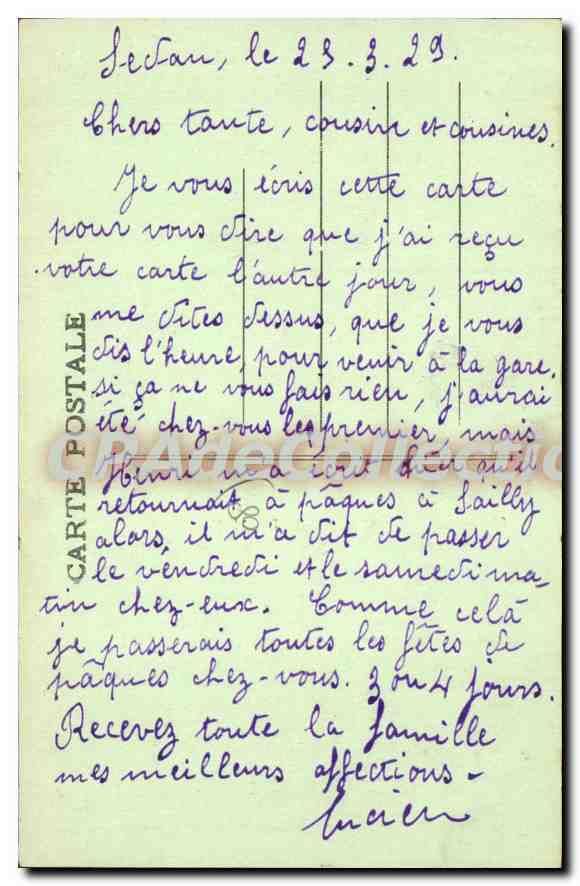 Sedan, le 23.3.29.
Chers tante, cousin et cousines.
Je vous écris cette carte
pour vous dire que j'ai reçu
votre carte l'autre jour, vous
me dites dessus, que je vous
dis l'heure, pour venir à la gare.
si ça ne vous fais rien, j'aurai
été chez-vous les premier, mais
Henri m'a écrit hier qu'il
retournait à pâques à Sailly
alors, il m'a dit de passer
le vendredi et le samedi ma-
tin chez-eux. Comme celà
je passerais toutes les fêtes de
pâques chez-vous. 3 ou 4 jours.
Recevez toute la famille
mes meilleurs affections-
Lucien
CARTE POSTALE
CPAdeCollection